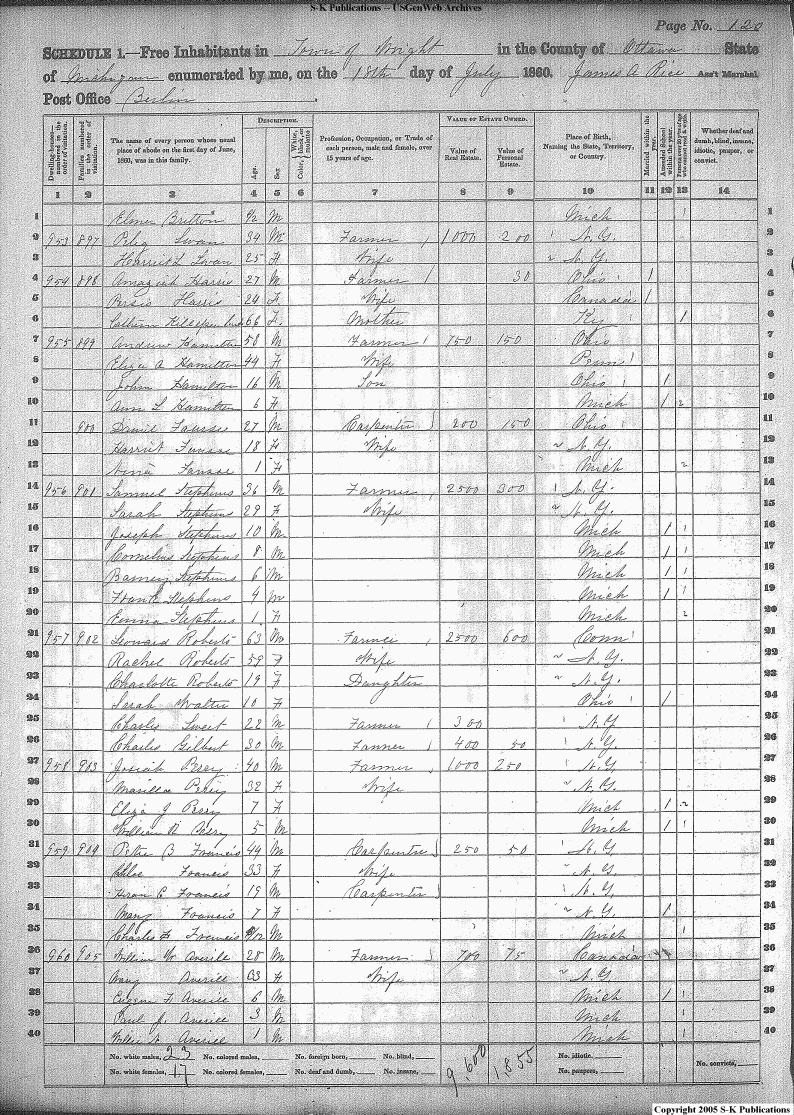 S-K Publications -- USGenWeb Archives
Page No. 120
SCHEDULE 1.—Free Inhabitants in Town of Wright in the County of Ottawa State
of Michigan enumerated by me, on the 18th day of July 1860. James A Rice Ass't Marshal
Post Office Berlin
DESCRIPTION. VALUE OF ESTATE OWNED.
Dwelling-houses—numbered in the order of visitation. Families numbered in the order of visitation. The name of every person whose usual place of abode on the first day of June, 1860, was in this family. Age. Sex Color, {White, black, or mulatto} Profession, Occupation, or Trade of each person, male and female, over 15 years of age. Value of Real Estate. Value of Personal Estate. Place of Birth, Naming the State, Territory, or Country. Married within the year. Attended School within the year. Whether deaf and dumb, blind, insane, idiotic, pauper, or convict.
1 2 3 4 5 6 7 8 9 10 11 12 13 14
1 Elmer Britton M Mich 1
2 953 897 Swan 34 M Farmer 1000 200 N.Y. 2
3 Harriet L Swan 25 F Wife N.Y. 3
4 954 898 Amaziah Harris 27 M Farmer 30 Ohio 1 4
5 Harris 24 F Wife Canada 1 5
6 66 F Mother Ky 1 6
7 955 899 Andrew Hamilton 58 M Farmer 750 150 Ohio 7
8 Eliza A Hamilton 44 F Wife Penn 8
9 John Hamilton 16 M Son Ohio 1 9
10 Ann L Hamilton 6 F Mich 1 2 10
11 900 27 M Carpenter 200 150 Ohio 11
12 Harriet 18 F Wife N.Y. 12
13 1 F Mich 2 13
14 956 901 Samuel Stephens 36 M Farmer 2500 300 N.Y. 14
15 Sarah Stephens 29 F Wife N.Y. 15
16 Joseph Stephens 10 M Mich 1 1 16
17 Cornelius Stephens 8 M Mich 1 1 17
18 Barney Stephens 6 M Mich 1 1 18
19 Frank Stephens 4 M Mich 1 1 19
20 Emma Stephens 1 F Mich 2 20
21 957 902 Leonard Roberts 63 M Farmer 2500 600 Conn 21
22 Rachel Roberts 59 F Wife N.Y. 22
23 Charlotte Roberts 19 F Daughter N.Y. 23
24 Sarah Walter 10 F Ohio 1 24
25 Charles Sweet 22 M Farmer 300 N.Y 25
26 Charles Gilbert 30 M Farmer 400 50 N.Y. 26
27 958 903 Josiah Perry 40 M Farmer 1000 250 N.Y 27
28 Perry 32 F Wife N.Y. 28
29 Eliza J Perry 7 F Mich 1 2 29
30 William Perry 5 M Mich 1 1 30
31 959 904 Peter B Francis 44 M Carpenter 250 50 N.Y 31
32 Chloe Francis 33 F Wife N.Y. 32
33 Francis 19 M Carpenter N.Y. 33
34 Mary Francis 7 F N.Y. 1 34
35 Charles Francis 9/12 M Mich 1 35
36 960 905 William W Averill 28 M Farmer 700 75 Canada 36
37 Averill F Wife N.Y 37
38 Eugene F Averill 6 M Mich 1 1 38
39 J. Averill 3 M Mich 39
40 Averill 1 M Mich 40
No. white males, 23 No. colored males, No. foreign born, No. blind, 9,600 1,855 No. idiotic, No. convicts,
No. white females, 17 No. colored females, No. deaf and dumb, No. insane, No. paupers,
Copyright 2005 S-K Publications